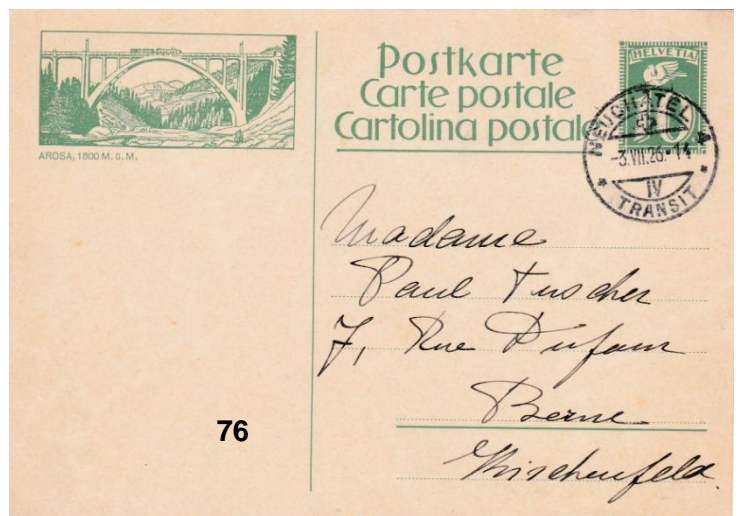 AROSA, 1800 M. ü. M.
Postkarte
Carte postale
Cartolina postale
HELVETIA
NEUCHÂTEL 4
-3.VII.26.-14
IV
TRANSIT
Madame
Paul Tuscher
7, Rue Dufour
Berne
Kirchenfeld.
76